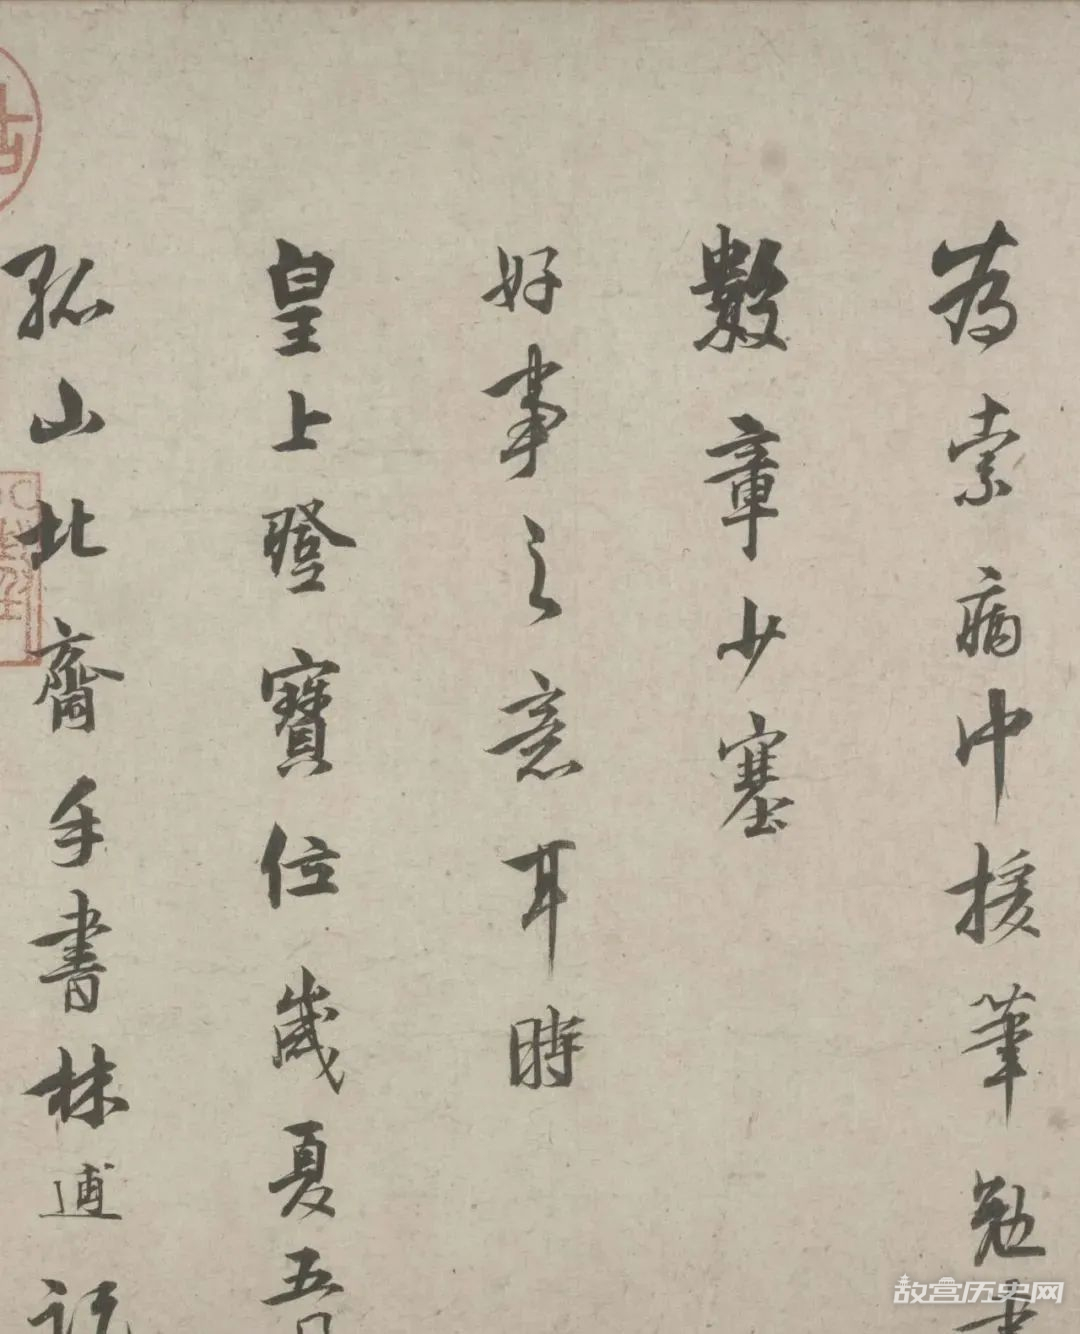 為索病中援筆勉書
數章少塞
好事之意耳時
皇上登寶位歲夏五月
孤山北齋手書林逋記
故宫历史网